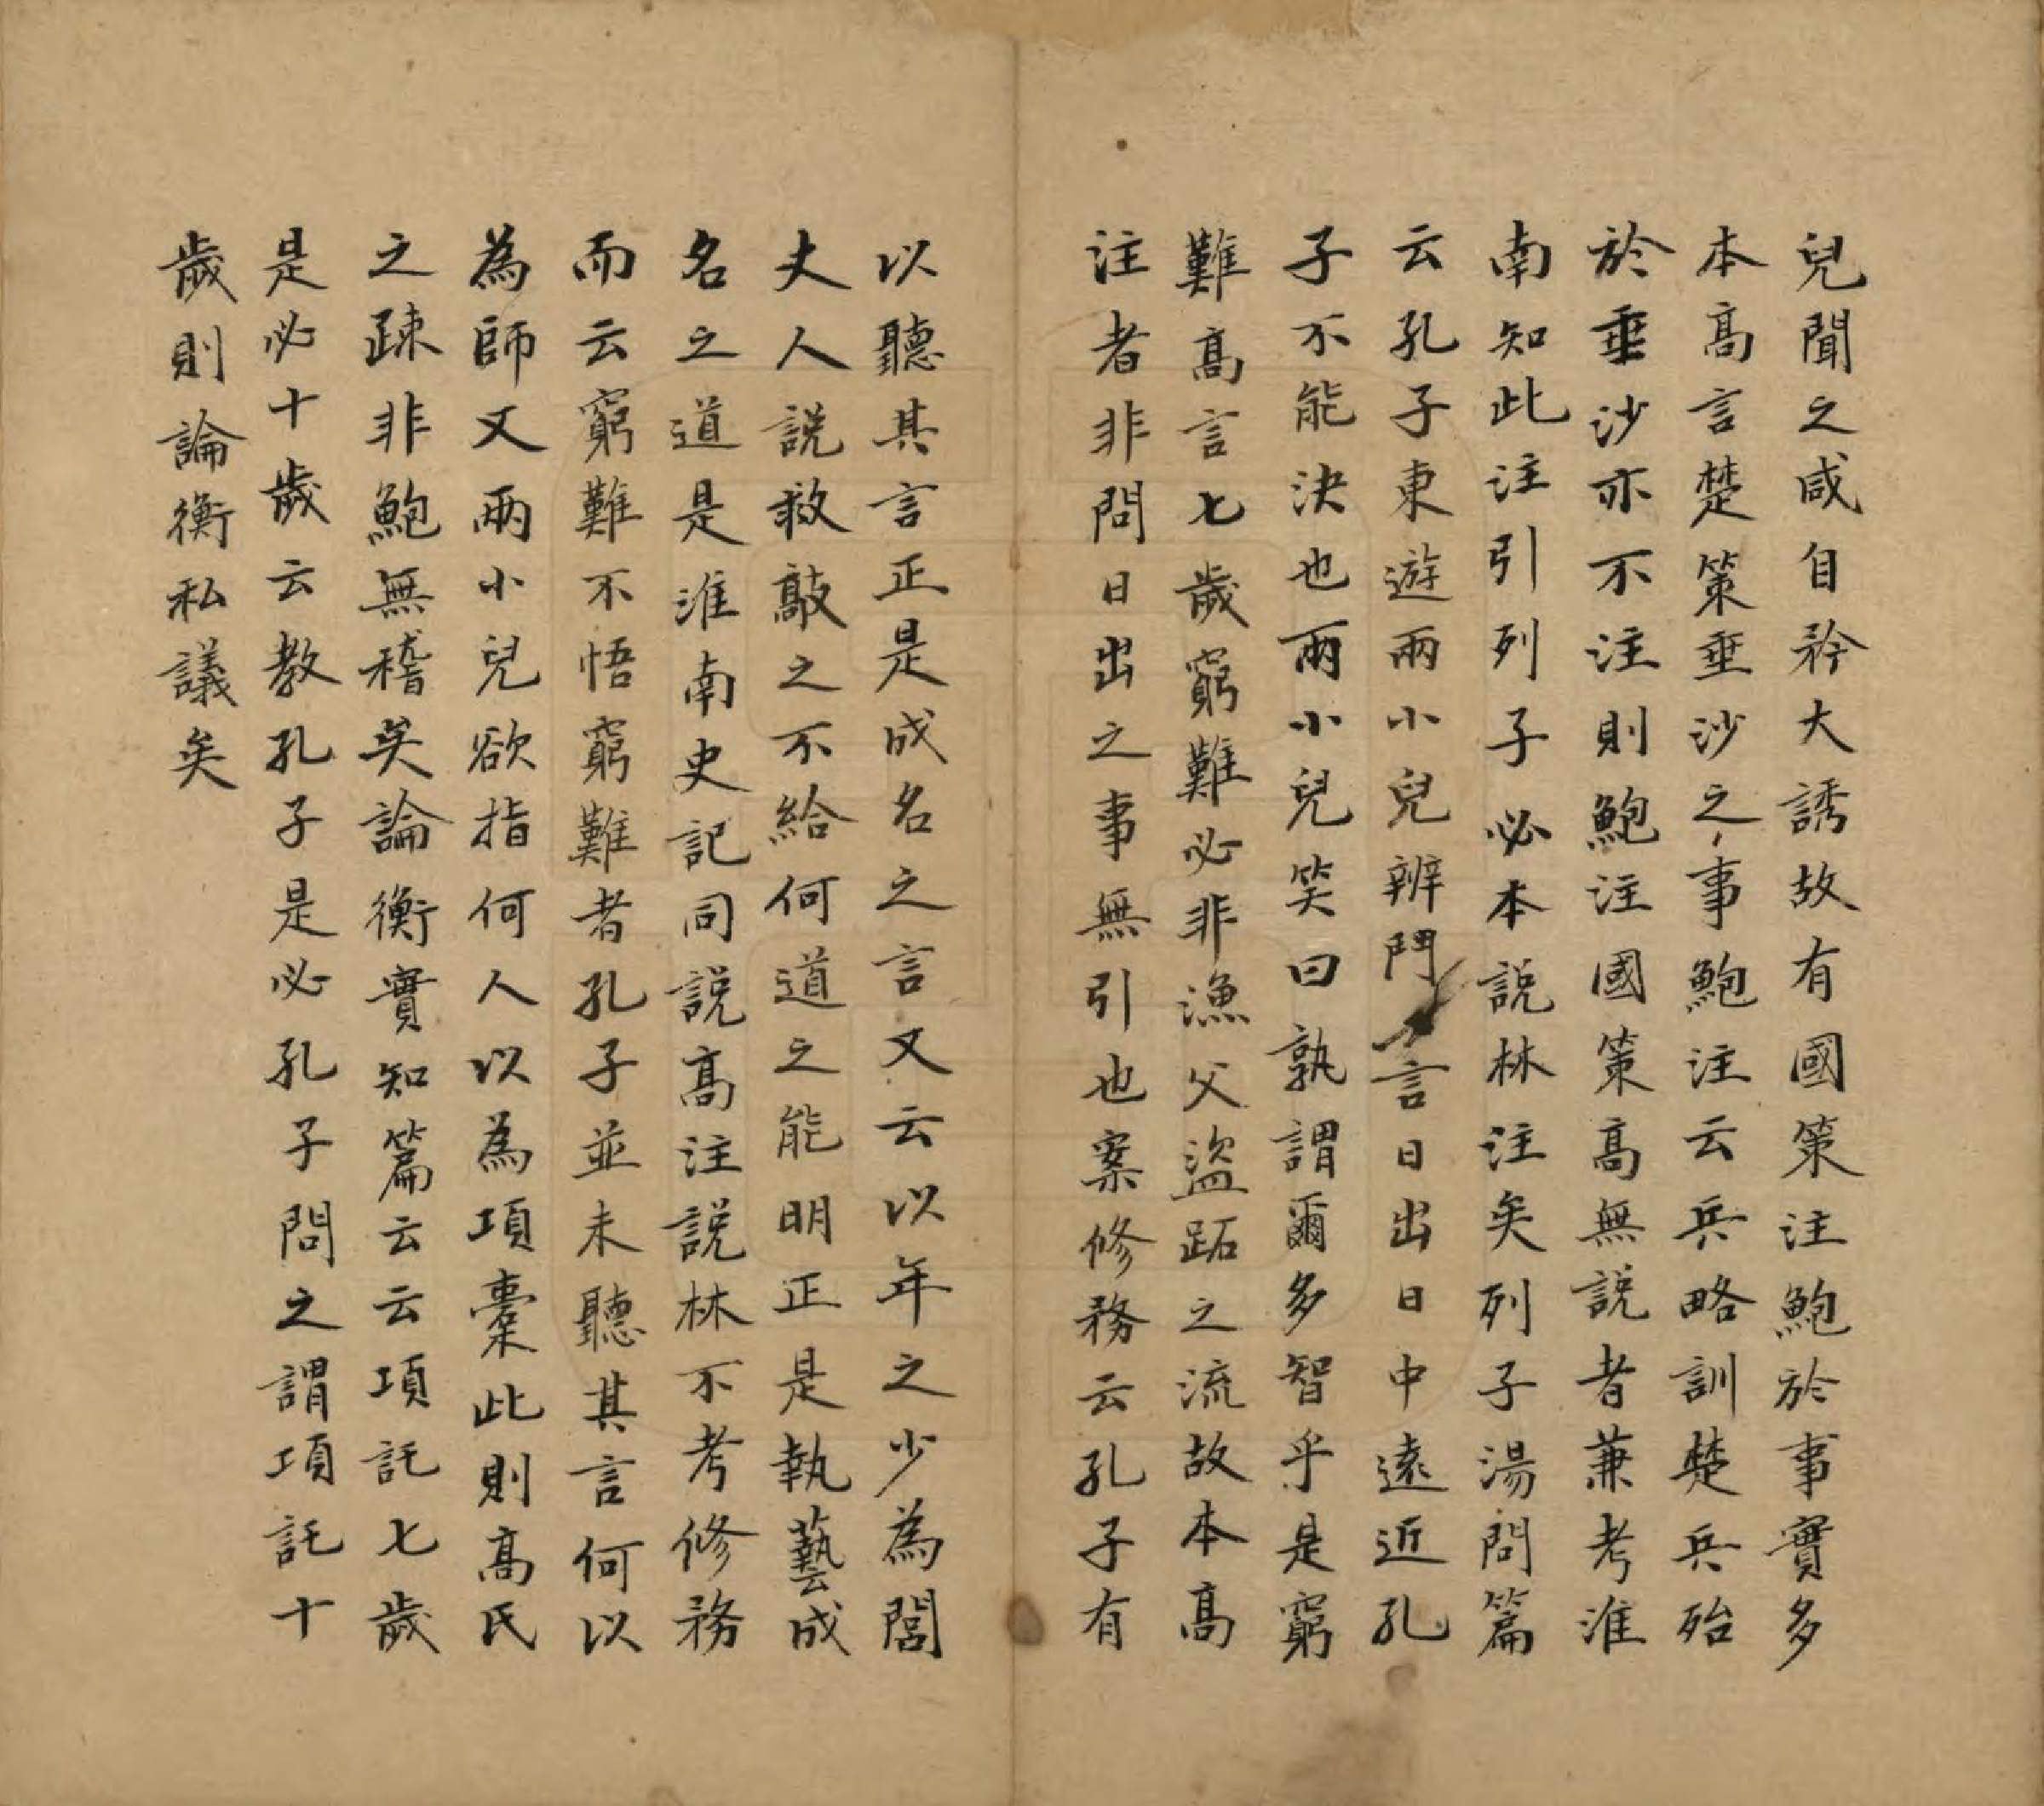 兒聞之咸自矜大誘故有國策注鮑於事實多
本高言楚策垂沙之事鮑注云兵略訓楚兵殆
於垂沙亦不注則鮑注國策高無説者兼考淮
南知此注引列子必本説林注矣列子湯問篇
云孔子東遊兩小兒辨鬥言日出日中遠近孔
子不能決也兩小兒笑曰孰謂爾多智乎是窮
難高言七歲窮難難必非漁父盜跖之流故本高
注者非問日出之事無引也案修務云孔子有
以聽其言正是成名之言又云以年之少為閭
丈人説救敲之不給何道之能明正是執藝成
名之道是淮南史記同説高注説林不考修務
而云窮難不悟窮難者孔子並未聽其言何以
為師又兩小兒欲指何人以為項橐此則高氏
之疎非鮑無稽矣論衡實知篇云云項託七歲
是必十歲云教孔子是必孔子問之謂項託十
歲則論衡私議矣